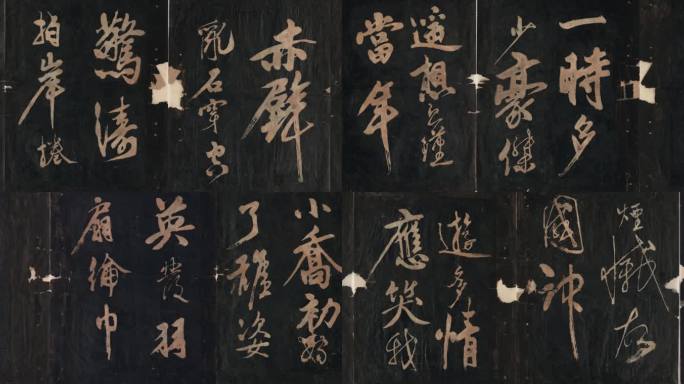 赤壁
亂石穿空
驚濤
拍岸捲
一時多
少豪傑
遥想公瑾
當年
小喬初嫁
了雄姿
英發羽
扇綸巾
煙滅故
國神
遊多情
應笑我